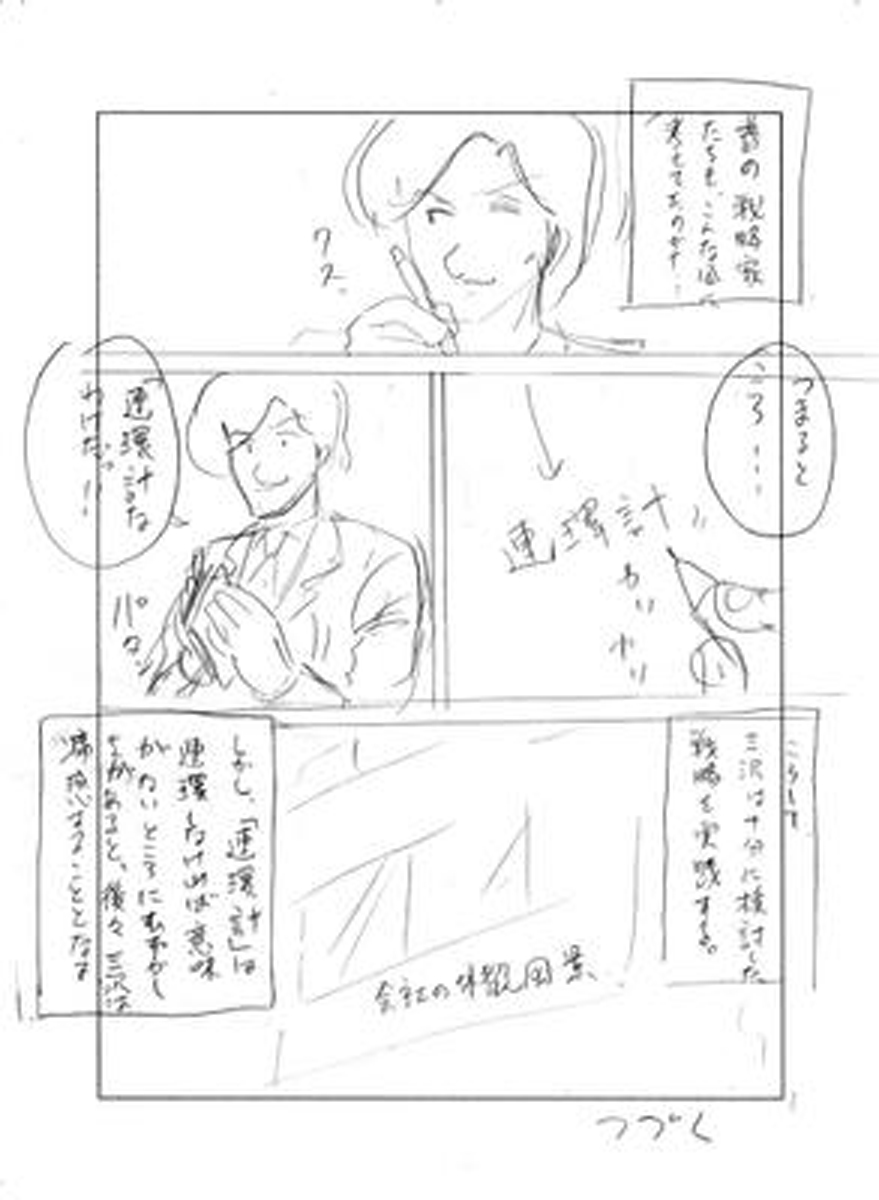 昔の戦略家
たちも、こんな風に
考えてたのかナ…
クス
つまると
ころ…
連環計
カリ
カリ
「連環計」な
わけだっ!!
パタン
こうして
三沢は十分に検討した
戦略を実践する。
会社の外観図
しかし、「連環計」は
連環しなければ意味
がないところにむずかし
さがあると、後々三沢は
痛感することとなる
つづく